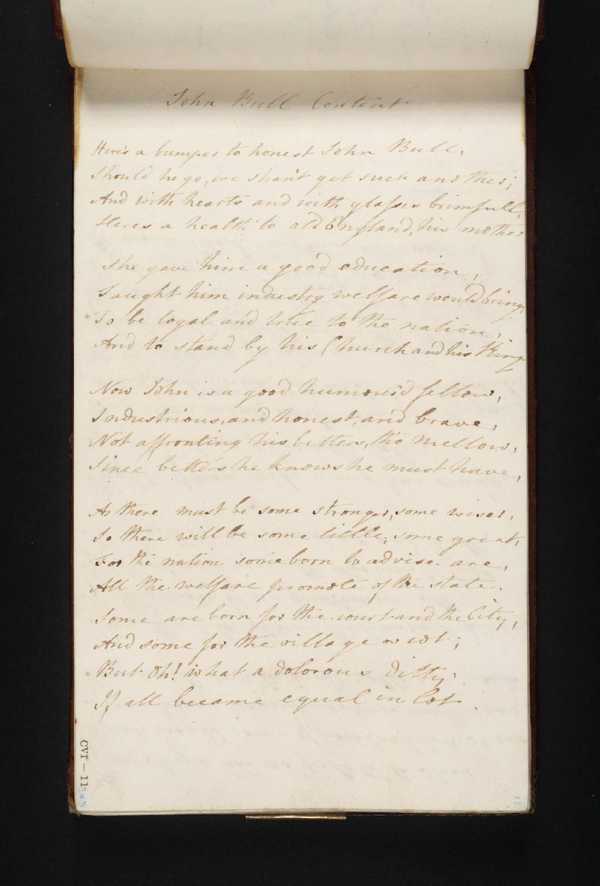 John Bull Content
Here's a bumper to honest John Bull,
Should he go, we shan't get such another;
And with hearts and with glasses brimfull,
Heres a health to old England, his mother
She gave him a good education,
Taught him industry welfare would bring,
To be loyal and true to the nation,
And to stand by his Church and his King
Now John is a good humour'd fellow,
Industrious, and honest, and brave,
Not affronting his betters, tho mellow,
Since betters he knows he must have,
As there must be some stronger, some wiser,
So there will be some little, some great,
For the nation some born to advise are,
All the welfare promote of the state.
Some are born for the court and the City,
And some for the village & cot;
But Oh! what a dolorous Ditty
If all became equal in lot.
CVI—II